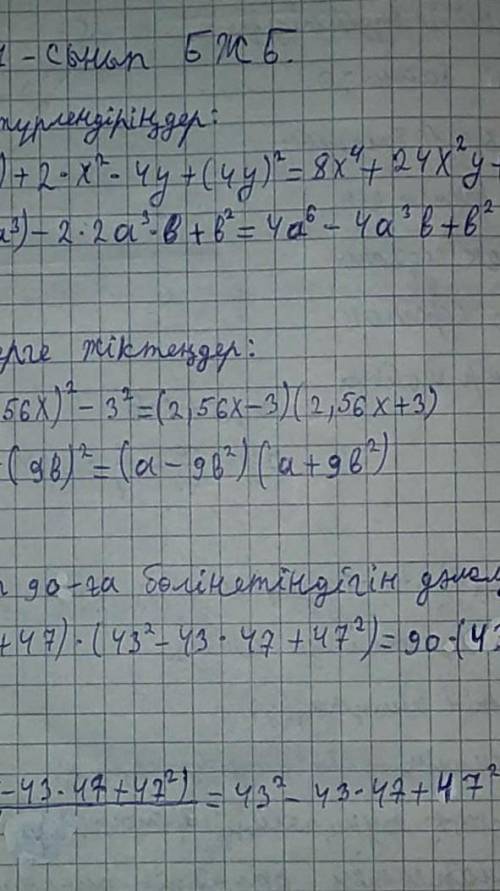 - сынып БЖБ.
түрлендіріңдер:
) + 2 · x² · 4y + (4y)² = 8x⁴ + 24x²y +
a³) - 2 · 2a³ · b + b² = 4a⁶ - 4a³b + b²
ерге жіктеңдер:
56x)² - 3² = (2,56x - 3)(2,56x + 3)
(9b)² = (a - 9b²)(a + 9b²)
90-ға бөлінетіндігін дәлел
+ 47) · (43² - 43 · 47 + 47²) = 90 · (43
- 43 · 47 + 47²) = 43² - 43 · 47 + 47²